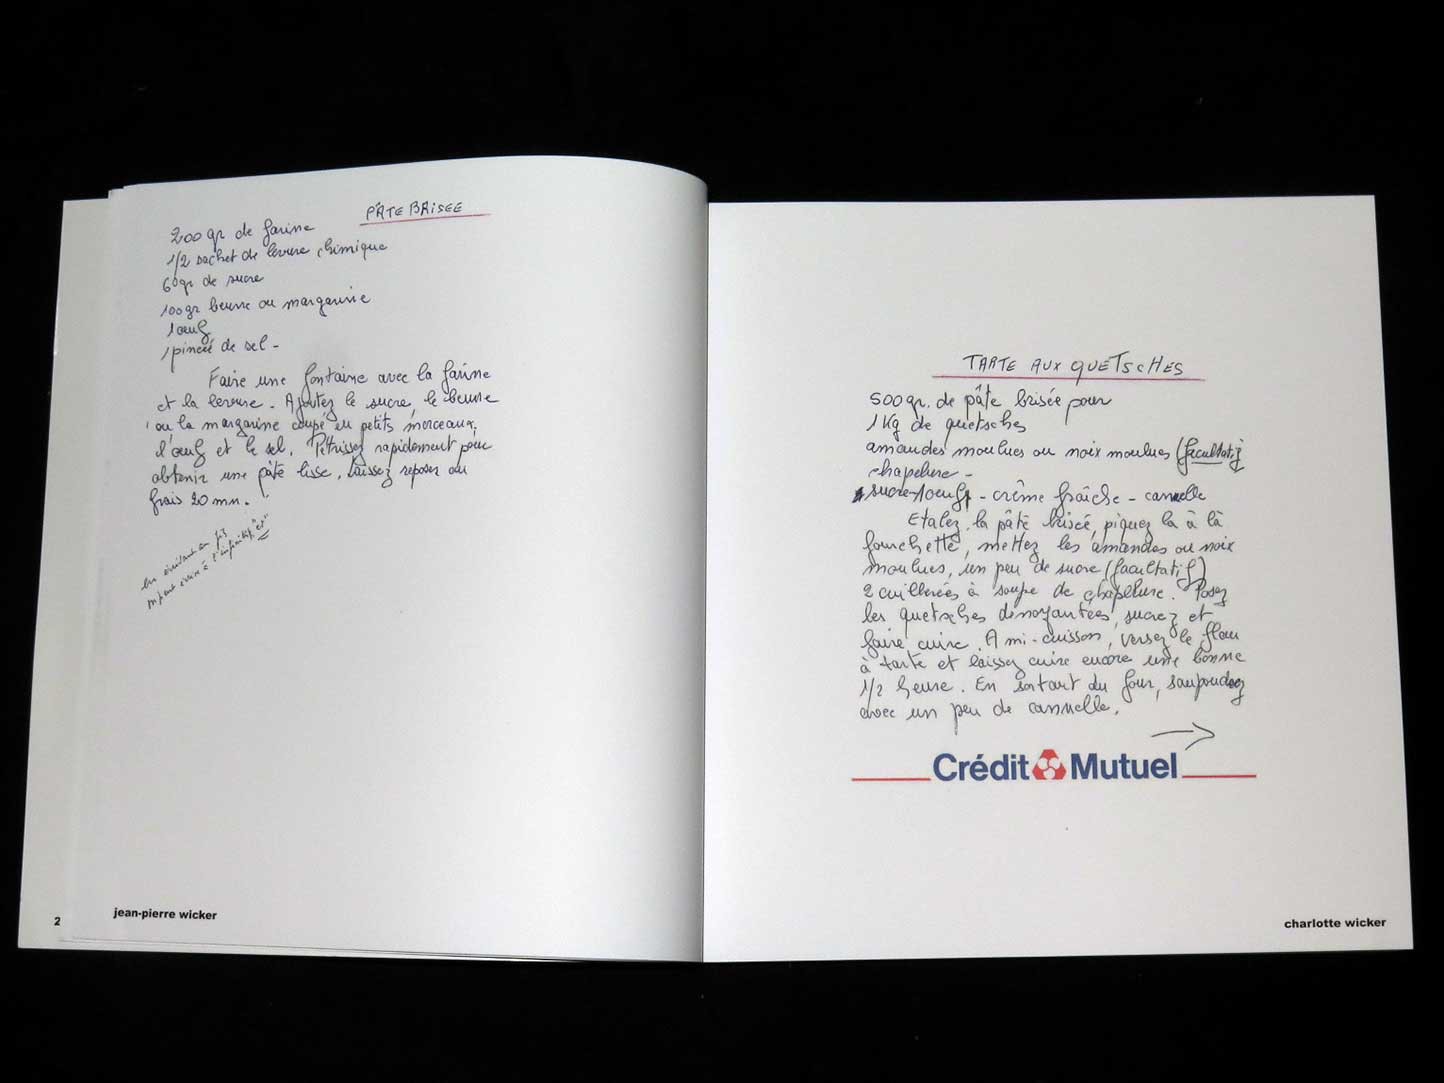 PÂTE BRISEE
200 gr de farine
1/2 sachet de levure chimique
60gr de sucre
100gr beurre ou margarine
1 œuf
1 pincée de sel -
Faire une fontaine avec la farine
et la levure. Ajoutez le sucre, le beurre
ou la margarine coupé en petits morceaux,
l'œuf et le sel. Pétrissez rapidement pour
obtenir une pâte lisse. Laissez reposer au
frais 20 mn.
2
jean-pierre wicker
TARTE AUX QUETSCHES
500gr. de pâte brisée pour
1 Kg de quetsches
amandes moulues ou noix moulues (facultatif)
chapelure -
sucre - 1 œuf - crème fraîche - cannelle
Etalez la pâte brisée, piquez la à la
fourchette, mettez les amandes ou noix
moulues, un peu de sucre (facultatif)
2 cuillerées à soupe de chapelure. Posez
les quetsches dénoyautées, sucrez et
faire cuire. A mi-cuisson, versez le flan
à tarte et laissez cuire encore une bonne
1/2 heure. En sortant du four, saupoudrez
avec un peu de cannelle.
Crédit Mutuel
charlotte wicker